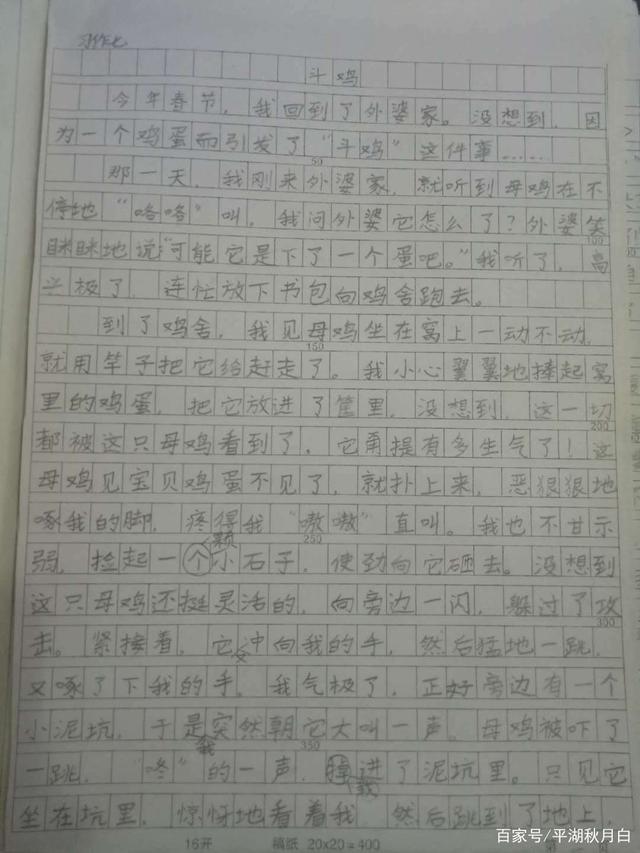 习作七
斗鸡
今年春节，我回到了外婆家。没想到，因
为一个鸡蛋而引发了“斗鸡”这件事……
50
那一天，我刚来外婆家，就听到母鸡在不
停地“咯咯”叫，我问外婆它怎么了？外婆笑
100
眯眯地说“可能它是下了一个蛋吧。”我听了，高
兴极了，连忙放下书包向鸡舍跑去。
到了鸡舍，我见母鸡坐在窝上一动不动，
150
就用竿子把它给赶走了。我小心翼翼地捧起窝
里的鸡蛋，把它放进了筐里，没想到，这一切
200
都被这只母鸡看到了，它甭提有多生气了！这
母鸡见宝贝鸡蛋不见了，就扑上来，恶狠狠地
啄我的脚，疼得我“嗷嗷”直叫。我也不甘示
颗
250
弱，捡起一个小石子，使劲向它砸去。没想到
这只母鸡还挺灵活的，向旁边一闪，躲过了攻
300
击。紧接着，它冲向我的手，然后猛地一跳，
又
又啄了下我的手。我气极了，正好旁边有一个
小泥坑，于是突然朝它大叫一声。母鸡被吓了
我
350
一跳，“咚”的一声，掉进了泥坑里。只见它
栽
坐在坑里，惊讶地看着我，然后跳到了地上，
16开 稿纸 20×20=400
百家号/平湖秋月白